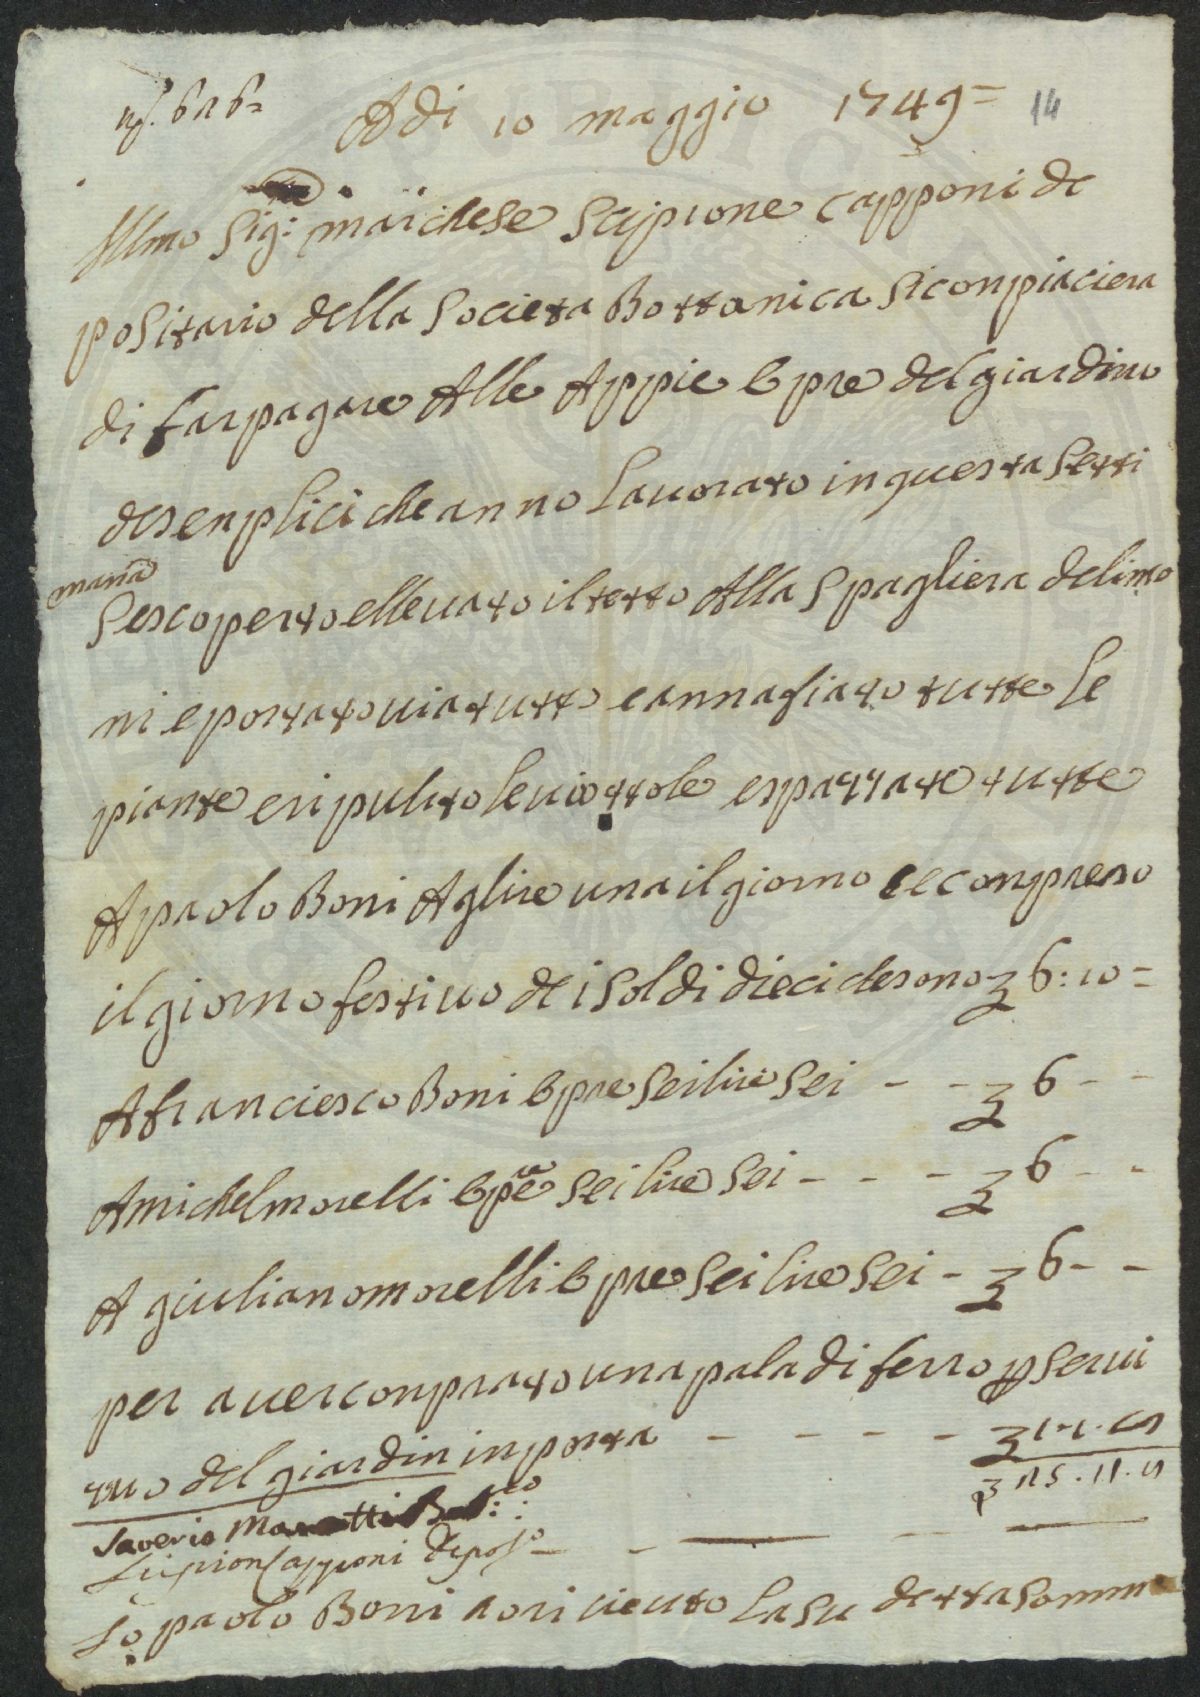 Adi 10 maggio 1749= 14
Illmo Sig: marchese Scipione Capponi de
positario della Societa Bottanica Si conpiaciera
di far pagare Alle Appie Opre del giardino
de senplici che anno Lavorato in questa Setti
mana
Sescoperto ellevato il tetto Alla Spagliera delimo
ni e portato via tutto e annafiato tutte le
piante e ripulito le viottole e spazzate tutte
A paolo Boni A lire una il giorno e conpreso
il giorno festivo de i Soldi dieci che sono 6:10=
A franciesco Boni Opre Sei lire Sei - - 6 - -
A michel morelli Opre Sei lire Sei - - - 6 - -
A giuliano morelli Opre Sei lire Sei - 6 - -
per aver conprato una pala di ferro p Servi
zio del giardin inporta - - - - -
Saverio Manetti
Scipion Capponi Depos.o
Io paolo Boni o ricieuto La Su detta Somma